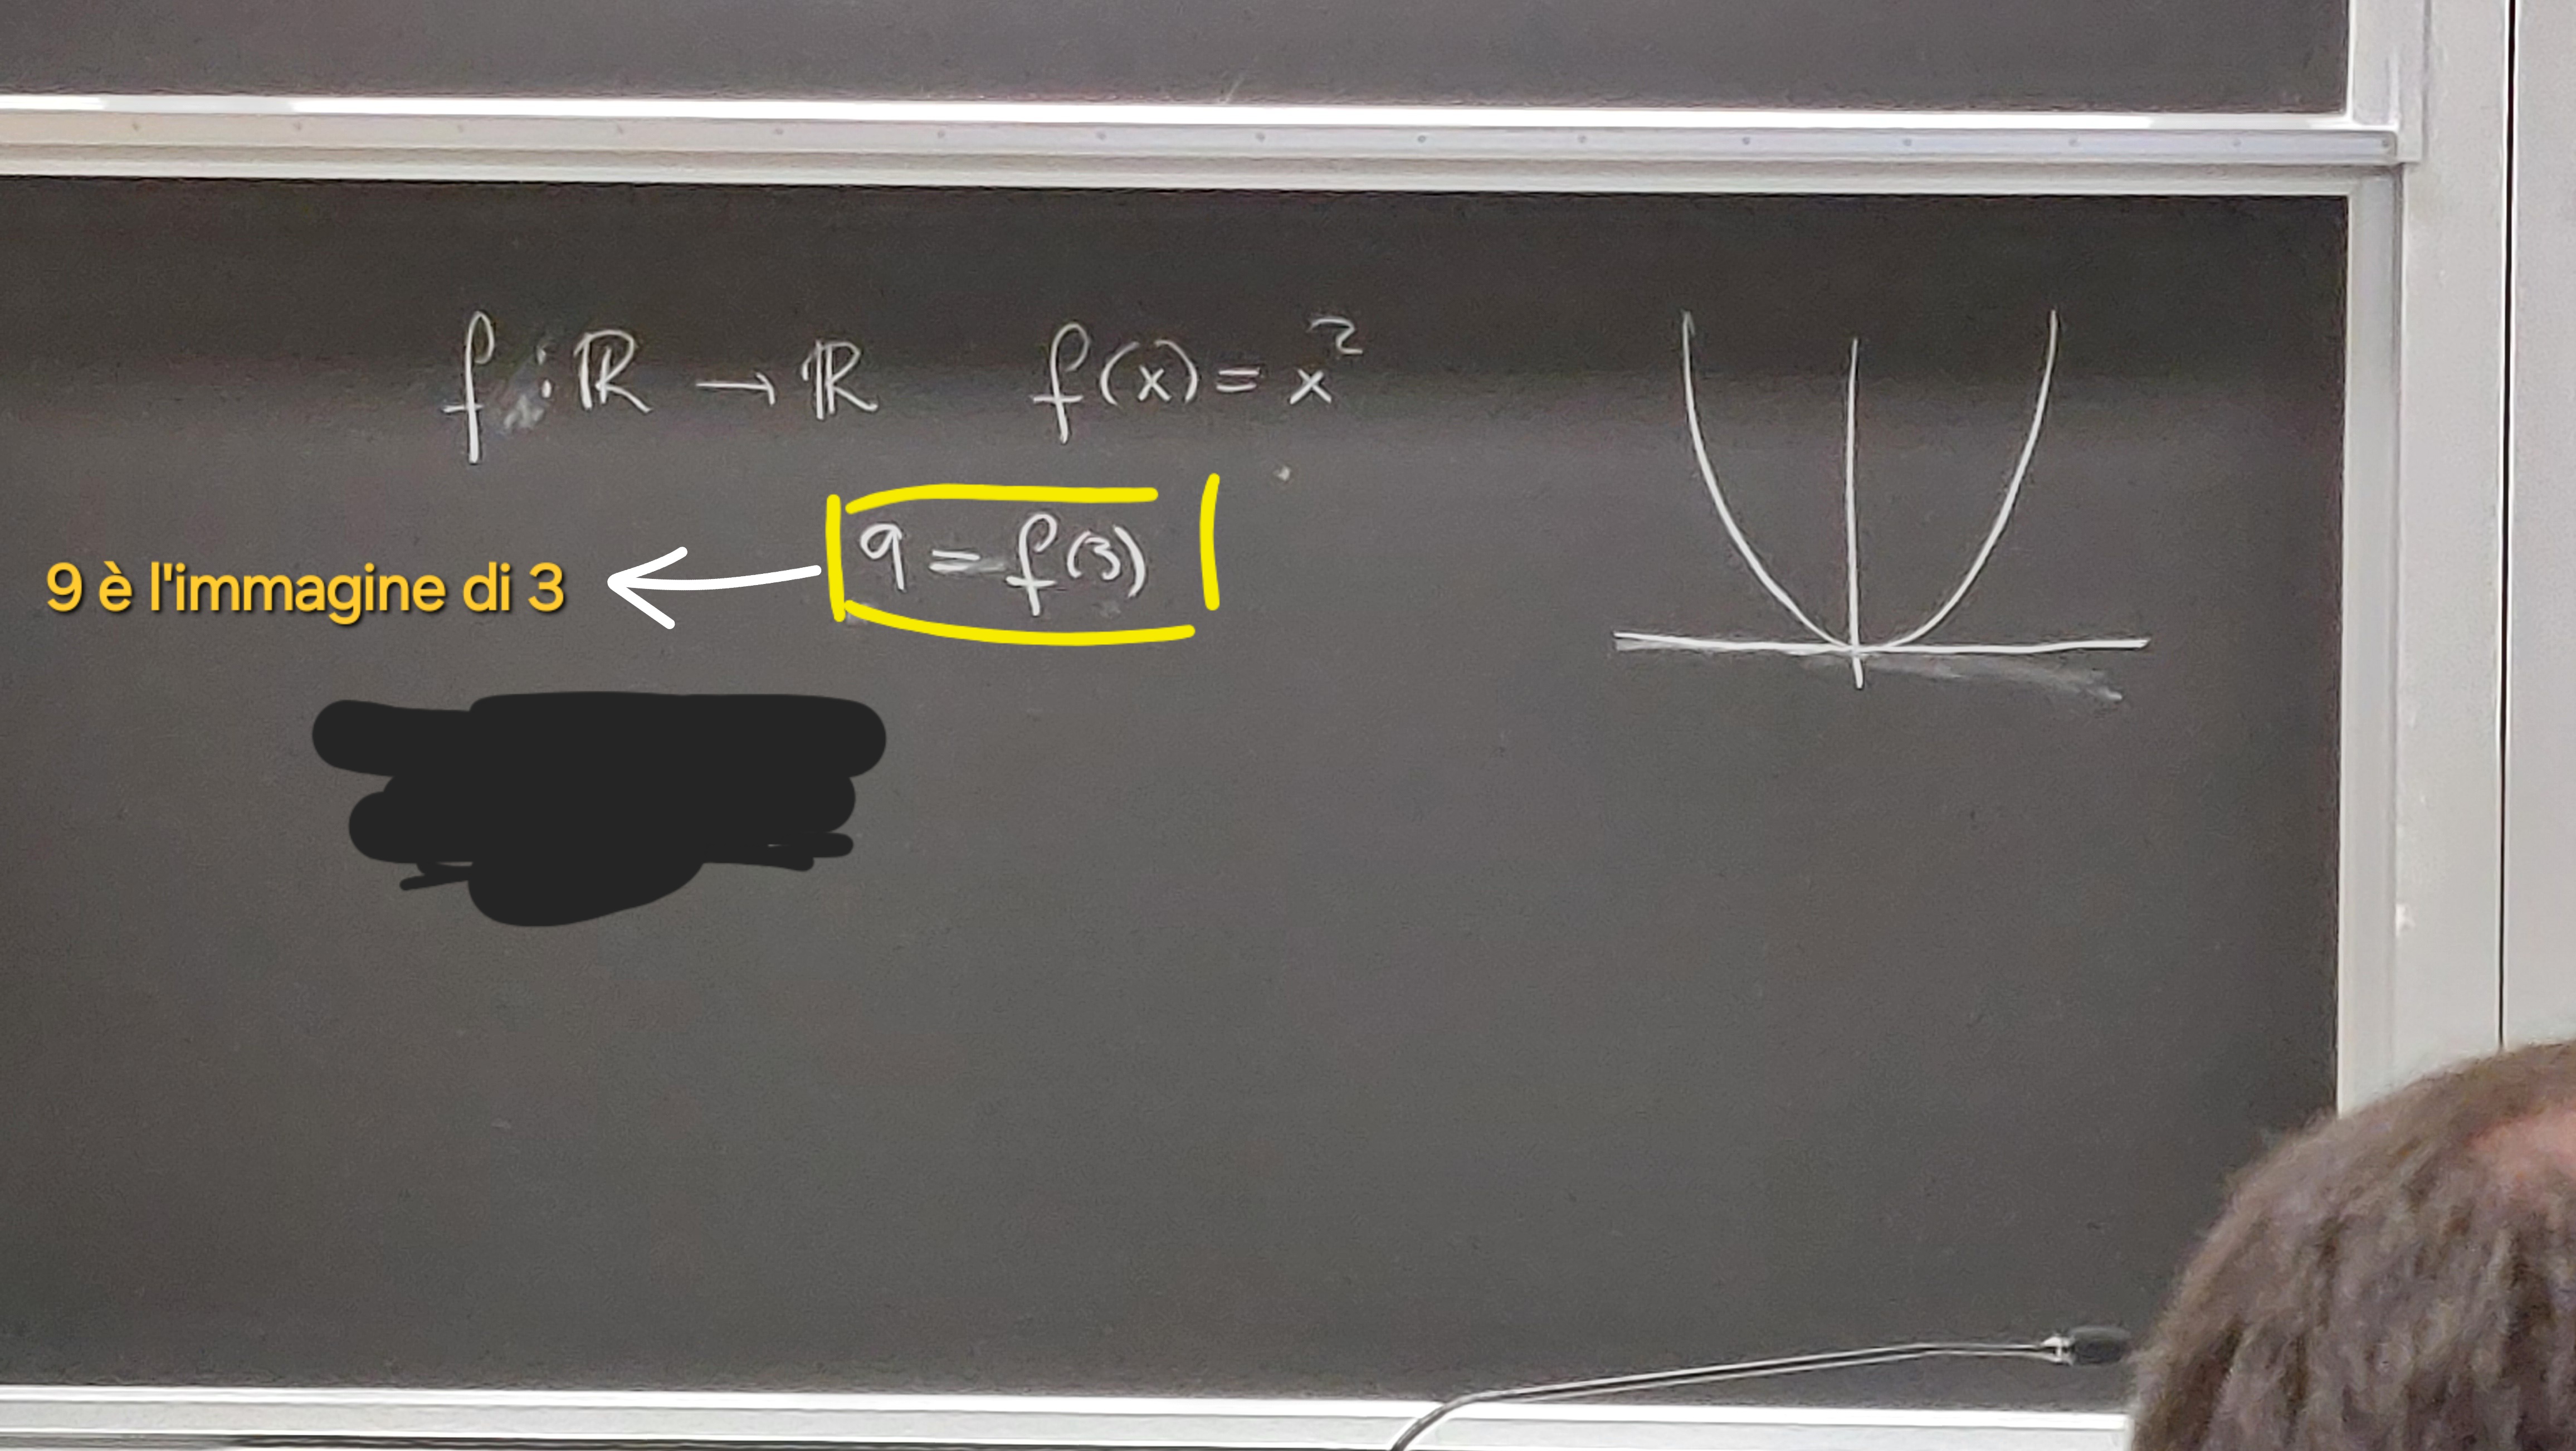 f : ℝ → ℝ f(x) = x²
9 = f(3)
9 è l'immagine di 3